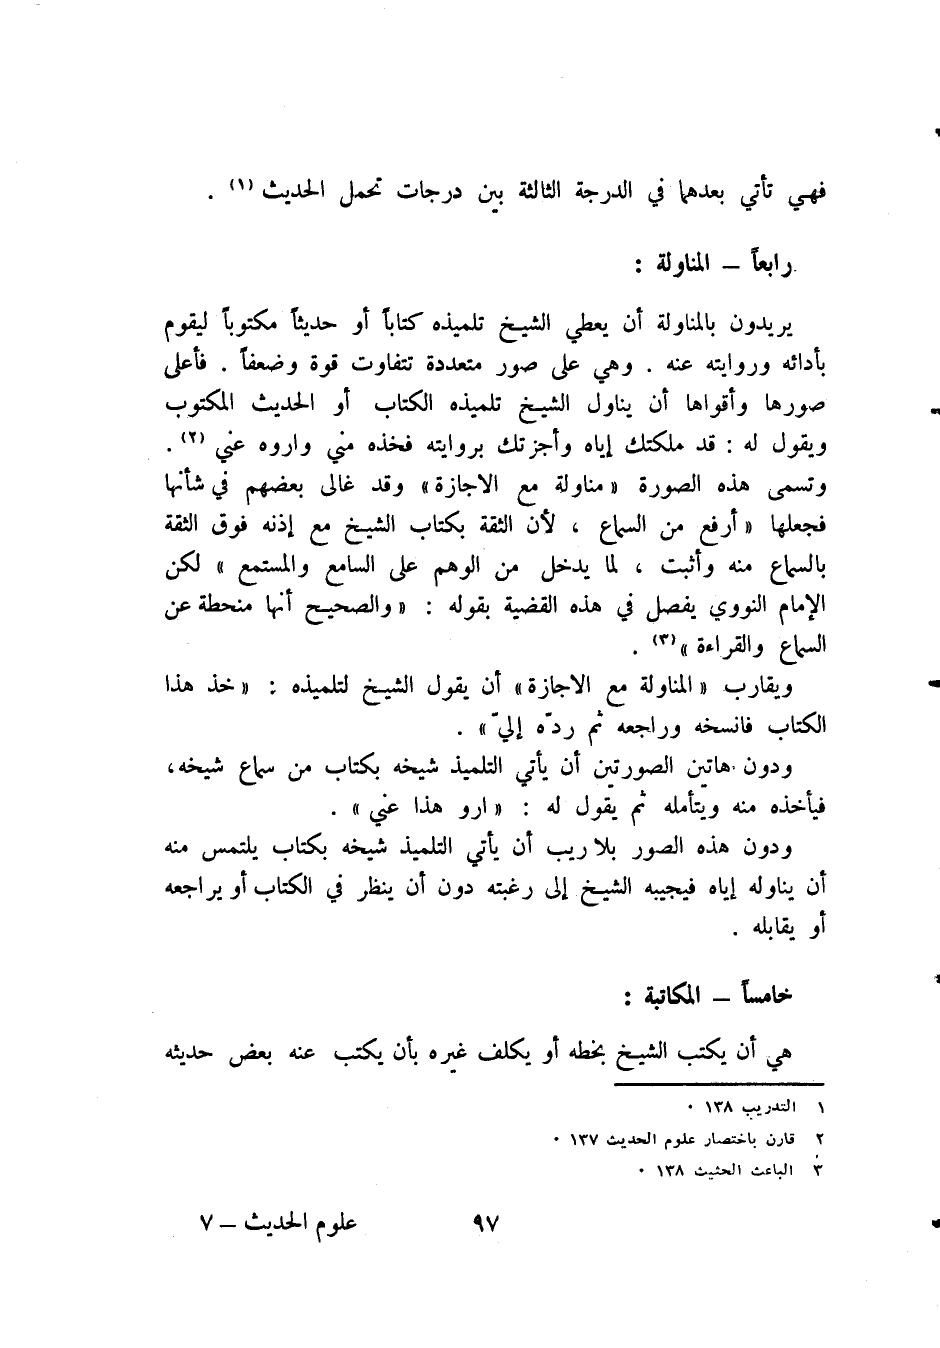 فهي تأتي بعدهما في الدرجة الثالثة بين درجات تحمل الحديث (١) .
رابعاً – المناولة :
يريدون بالمناولة أن يعطي الشيخ تلميذه كتاباً أو حديثاً مكتوباً ليقوم
بأدائه وروايته عنه . وهي على صور متعددة تتفاوت قوة وضعفاً . فأعلى
صورها وأقواها أن يناول الشيخ تلميذه الكتاب أو الحديث المكتوب
ويقول له : قد ملكتك إياه وأجزتك بروايته فخذه مني واروه عني (٢) .
وتسمى هذه الصورة « مناولة مع الاجازة » وقد غالى بعضهم في شأنها
فجعلها « أرفع من السماع ، لأن الثقة بكتاب الشيخ مع إذنه فوق الثقة
بالسماع منه وأثبت ، لما يدخل من الوهم على السامع والمستمع » لكن
الإمام النووي يفصل في هذه القضية بقوله : « والصحيح أنها منحطة عن
السماع والقراءة » (٣) .
ويقارب « المناولة مع الاجازة » أن يقول الشيخ لتلميذه : « خذ هذا
الكتاب فانسخه وراجعه ثم ردّه إليّ » .
ودون هاتين الصورتين أن يأتي التلميذ شيخه بكتاب من سماع شيخه،
فيأخذه منه ويتأمله ثم يقول له : « ارو هذا عني » .
ودون هذه الصور بلا ريب أن يأتي التلميذ شيخه بكتاب يلتمس منه
أن يناوله إياه فيجيبه الشيخ إلى رغبته دون أن ينظر في الكتاب أو يراجعه
أو يقابله .
خامساً – المكاتبة :
هي أن يكتب الشيخ بخطه أو يكلف غيره بأن يكتب عنه بعض حديثه
١ التدريب ١٣٨ .
٢ قارن باختصار علوم الحديث ١٣٧ .
٣ الباعث الحثيث ١٣٨ .
٩٧
علوم الحديث – ٧